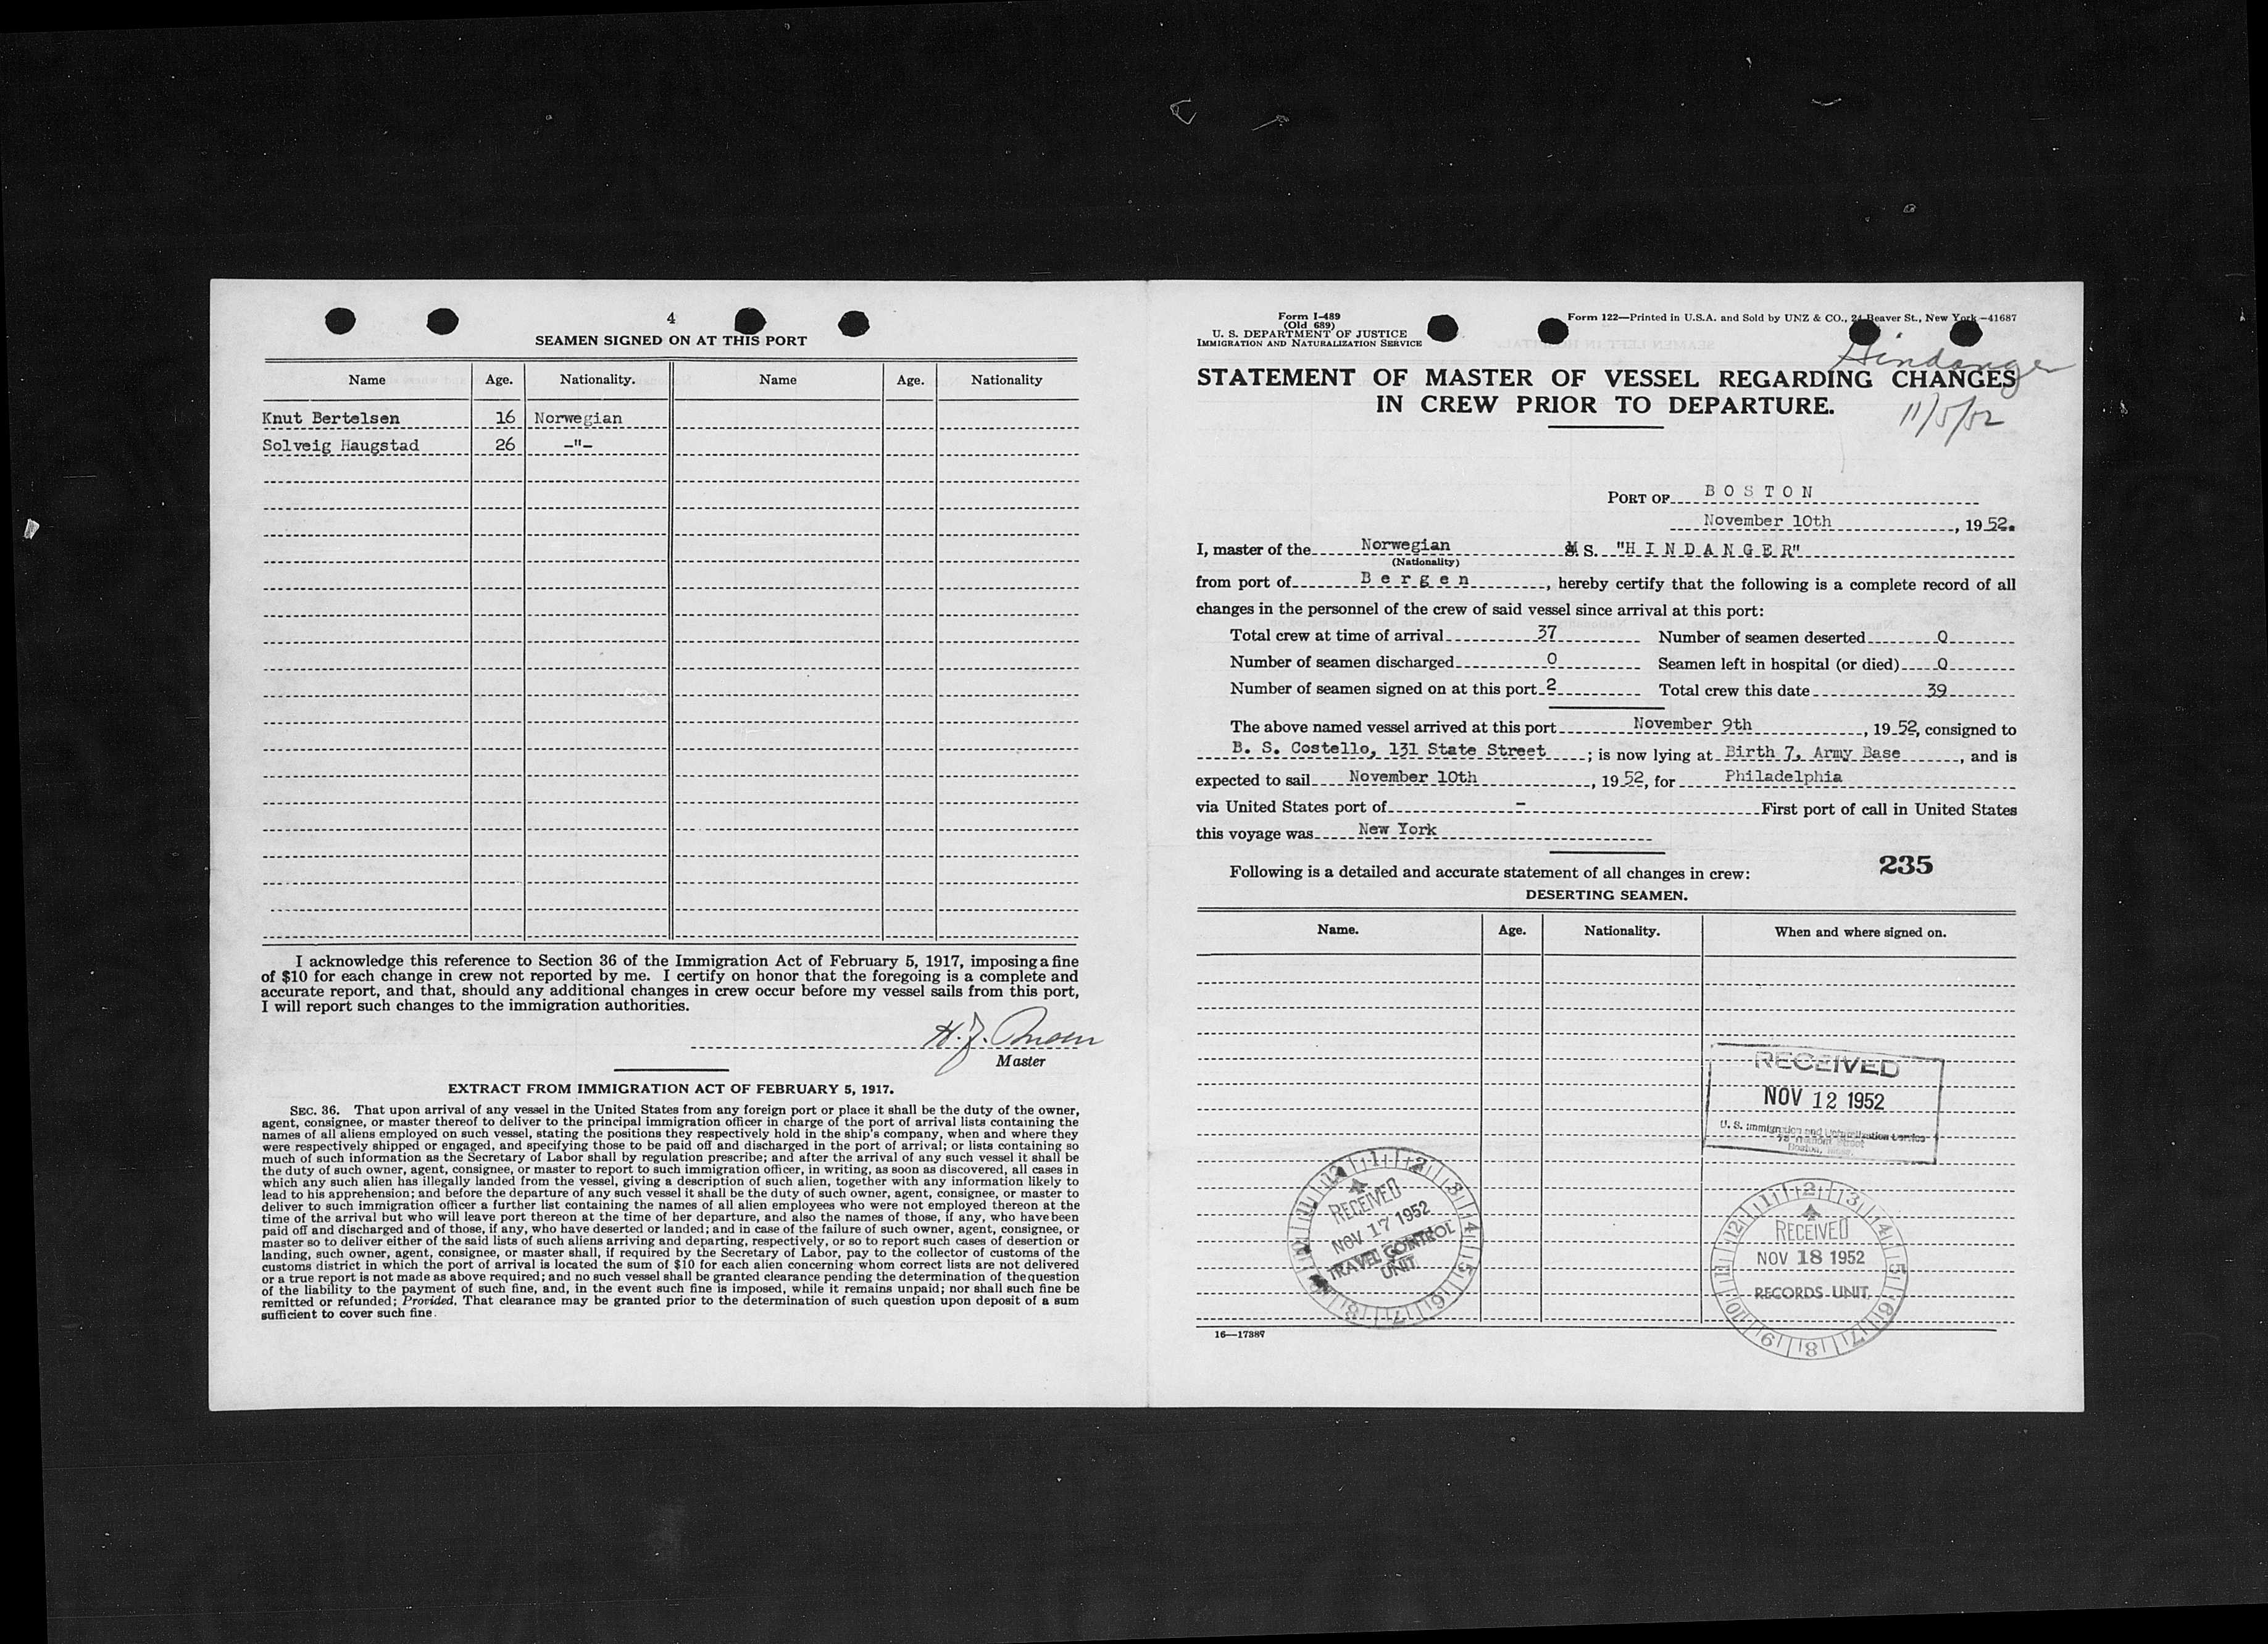 4
SEAMEN SIGNED ON AT THIS PORT
Name Age. Nationality. Name Age. Nationality
Knut Bertelsen 16 Norwegian
Solveig Haugstad 26 -"-
I acknowledge this reference to Section 36 of the Immigration Act of February 5, 1917, imposing a fine
of $10 for each change in crew not reported by me. I certify on honor that the foregoing is a complete and
accurate report, and that, should any additional changes in crew occur before my vessel sails from this port,
I will report such changes to the immigration authorities.
H. J.
Master
EXTRACT FROM IMMIGRATION ACT OF FEBRUARY 5, 1917.
SEC. 36. That upon arrival of any vessel in the United States from any foreign port or place it shall be the duty of the owner,
agent, consignee, or master thereof to deliver to the principal immigration officer in charge of the port of arrival lists containing the
names of all aliens employed on such vessel, stating the positions they respectively hold in the ship's company, when and where they
were respectively shipped or engaged, and specifying those to be paid off and discharged in the port of arrival; or lists containing so
much of such information as the Secretary of Labor shall by regulation prescribe; and after the arrival of any such vessel it shall be
the duty of such owner, agent, consignee, or master to report to such immigration officer, in writing, as soon as discovered, all cases in
which any such alien has illegally landed from the vessel, giving a description of such alien, together with any information likely to
lead to his apprehension; and before the departure of any such vessel it shall be the duty of such owner, agent, consignee, or master to
deliver to such immigration officer a further list containing the names of all alien employees who were not employed thereon at the
time of the arrival but who will leave port thereon at the time of her departure, and also the names of those, if any, who have been
paid off and discharged and of those, if any, who have deserted or landed; and in case of the failure of such owner, agent, consignee, or
master so to deliver either of the said lists of such aliens arriving and departing, respectively, or so to report such cases of desertion or
landing, such owner, agent, consignee, or master shall, if required by the Secretary of Labor, pay to the collector of customs of the
customs district in which the port of arrival is located the sum of $10 for each alien concerning whom correct lists are not delivered
or a true report is not made as above required; and no such vessel shall be granted clearance pending the determination of the question
of the liability to the payment of such fine, and, in the event such fine is imposed, while it remains unpaid; nor shall such fine be
remitted or refunded; Provided, That clearance may be granted prior to the determination of such question upon deposit of a sum
sufficient to cover such fine.
Form I-489
(Old 689)
U. S. DEPARTMENT OF JUSTICE
IMMIGRATION AND NATURALIZATION SERVICE
Form 122—Printed in U.S.A. and Sold by UNZ & CO., 24 Beaver St., New York—41687
Hindanger
11/5/52
STATEMENT OF MASTER OF VESSEL REGARDING CHANGES
IN CREW PRIOR TO DEPARTURE.
PORT OF BOSTON
November 10th, 1952.
I, master of the Norwegian M S. "HINDANGER"
(Nationality)
from port of Bergen, hereby certify that the following is a complete record of all
changes in the personnel of the crew of said vessel since arrival at this port:
Total crew at time of arrival 37 Number of seamen deserted 0
Number of seamen discharged 0 Seamen left in hospital (or died) 0
Number of seamen signed on at this port 2 Total crew this date 39
The above named vessel arrived at this port November 9th, 1952, consigned to
B. S. Costello, 131 State Street; is now lying at Birth 7, Army Base, and is
expected to sail November 10th, 1952, for Philadelphia
via United States port of - First port of call in United States
this voyage was New York
235
Following is a detailed and accurate statement of all changes in crew:
DESERTING SEAMEN.
Name. Age. Nationality. When and where signed on.
RECEIVED
NOV 12 1952
U. S. Immigration and Naturalization Service
Boston, Mass.
12 1 2 3 4 5 6 7 8 9 10 11
RECEIVED
NOV 17 1952
TRAVEL CONTROL
UNIT
12 1 2 3 4 5 6 7 8 9 10 11
RECEIVED
NOV 18 1952
RECORDS UNIT
16—17387